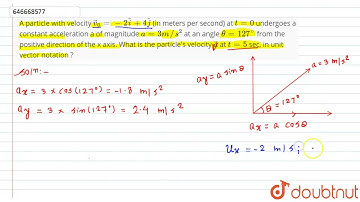 646668577
A particle with velocity v⃗₀ = −2î + 4ĵ (in meters per second) at t = 0 undergoes a
constant acceleration a of magnitude a = 3m/s² at an angle θ = 127° from the
positive direction of the x axis. What is the particle's velocity v⃗ at t = 5 sec, in unit
vector notation ?
Soln:-
ax = 3 × cos(127°) = -1.8 m/s²
ay = 3 × sin(127°) = 2.4 m/s²
ay = a sinθ
a = 3 m/s²
θ = 127°
ax = a cosθ
Ux = -2 m/s;
doubtnut